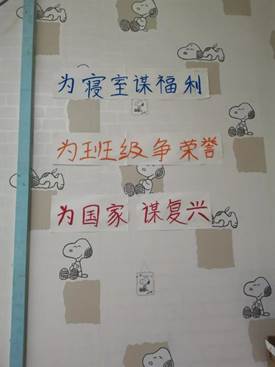 为寝室谋福利
为班级争荣誉
为国家谋复兴